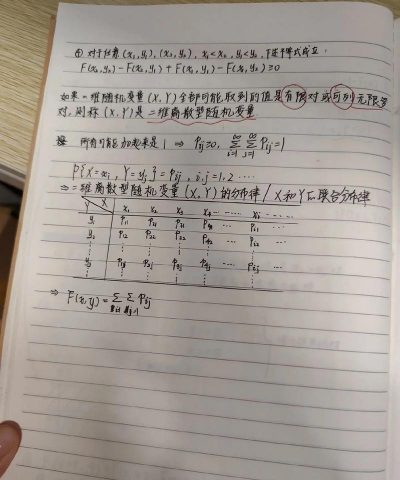 ④ 对于任意 (x₁, y₁), (x₂, y₂), x₁<x₂, y₁<y₂, 下述不等式成立:
F(x₂, y₂) - F(x₂, y₁) + F(x₁, y₁) - F(x₁, y₂) ≥ 0
如果二维随机变量 (X, Y) 全部可能取到的值是有限对或可列无限多
对, 则称 (X, Y) 是二维离散型随机变量
所有可能加起来是 1 ⇒ Pij ≥ 0, ∞Σi=1 ∞Σj=1 Pij = 1
P{X = xi, Y = yj} = Pij, i, j = 1, 2 ····
⇒ 二维离散型随机变量 (X, Y) 的分布律 / X 和 Y 的联合分布律
Y X x₁ x₂ x₃ x₄ ······ xi ···
y₁ P11 P21 P31 P41 ··· Pi1 ···
y₂ P12 P22 P32 P42 ··· Pi2 ···
⋮ ⋮ ⋮ ⋮ ⋮ ⋮
yj P1j P2j P3j P4j ··· Pij ···
⋮ ⋮ ⋮ ⋮ ⋮ ⋮
⇒ F(x, y) = Σ Σ Pij